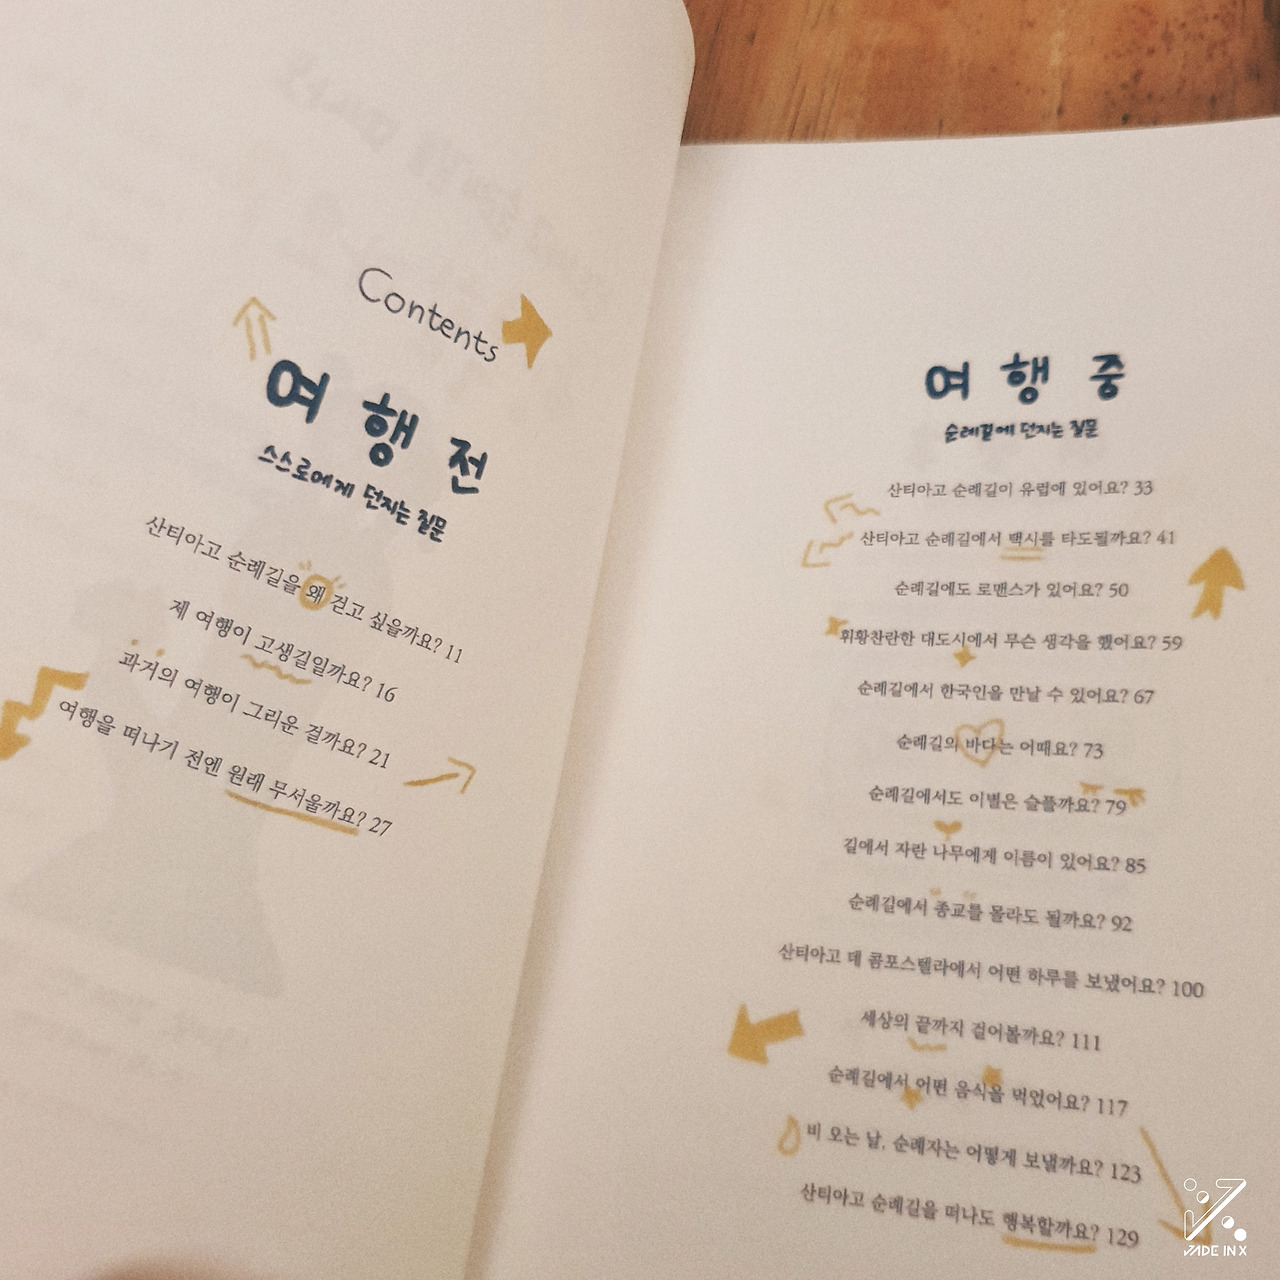 Contents
여행 전
스스로에게 던지는 질문
산티아고 순례길을 왜 걷고 싶을까요? 11
제 여행이 고생길일까요? 16
과거의 여행이 그리운 걸까요? 21
여행을 떠나기 전엔 원래 무서울까요? 27
여행 중
순례길에 던지는 질문
산티아고 순례길이 유럽에 있어요? 33
산티아고 순례길에서 택시를 타도될까요? 41
순례길에도 로맨스가 있어요? 50
휘황찬란한 대도시에서 무슨 생각을 했어요? 59
순례길에서 한국인을 만날 수 있어요? 67
순례길의 바다는 어때요? 73
순례길에서도 이별은 슬플까요? 79
길에서 자란 나무에게 이름이 있어요? 85
순례길에서 종교를 몰라도 될까요? 92
산티아고 데 콤포스텔라에서 어떤 하루를 보냈어요? 100
세상의 끝까지 걸어볼까요? 111
순례길에서 어떤 음식을 먹었어요? 117
비 오는 날, 순례자는 어떻게 보낼까요? 123
산티아고 순례길을 떠나도 행복할까요? 129
JADE IN X